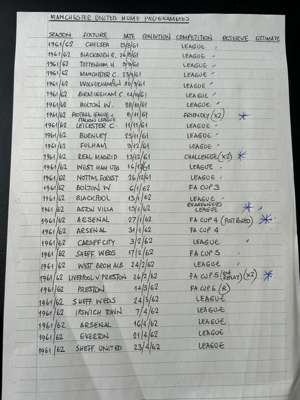 MANCHESTER UNITED HOME PROGRAMMES
SEASON FIXTURE DATE CONDITION COMPETITION RESERVE ESTIMATE
1961/62 CHELSEA 23/8/61 LEAGUE "
1961/62 BLACKBURN R. 26/8/61 LEAGUE "
1961/62 TOTTENHAM H 9/9/61 LEAGUE "
1961/62 MANCHESTER C 23/9/61 LEAGUE "
1961/62 WOLVERHAMPTON 30/9/61 LEAGUE "
1961/62 BIRMINGHAM C 14/10/61 LEAGUE "
1961/62 BOLTON W. LEAGUE "
1961/62 ITALIAN LEAGUE FRIENDLY (X2) *
1961/62 LEICESTER C. 11/11/61 LEAGUE "
1961/62 BURNLEY 25/11/61 LEAGUE
1961/62 FULHAM 9/12/61 LEAGUE
1961/62 REAL MADRID 13/12/61 CHALLENGE (X2) *
1961/62 WEST HAM UTD 16/12/61 LEAGUE
1961/62 NOTTM. FOREST 26/12/61 LEAGUE
1961/62 BOLTON W 6/1/62 FA CUP 3
1961/62 BLACKPOOL 13/1/62 LEAGUE
1961/62 ASTON VILLA 15/1/62 LEAGUE *
1961/62 ARSENAL 27/1/62 FA CUP 4 (POSTPONED) *
1961/62 ARSENAL 31/1/62 FA CUP 4
1961/62 CARDIFF CITY 3/2/62 LEAGUE
1961/62 SHEFF. WEDS 17/2/62 FA CUP 5
1961/62 WEST BROM ALB 24/2/62 LEAGUE
1961/62 LIVERPOOL V PRESTON 26/2/62 FA CUP 5 (X2) *
1961/62 PRESTON 14/3/62 FA CUP 6 (R)
1961/62 SHEFF. WEDS 24/3/62 LEAGUE
1961/62 IPSWICH TOWN 7/4/62 LEAGUE
1961/62 ARSENAL 16/4/62 LEAGUE
1961/62 EVERTON 21/4/62 LEAGUE
1961/62 SHEFF UNITED 23/4/62 LEAGUE